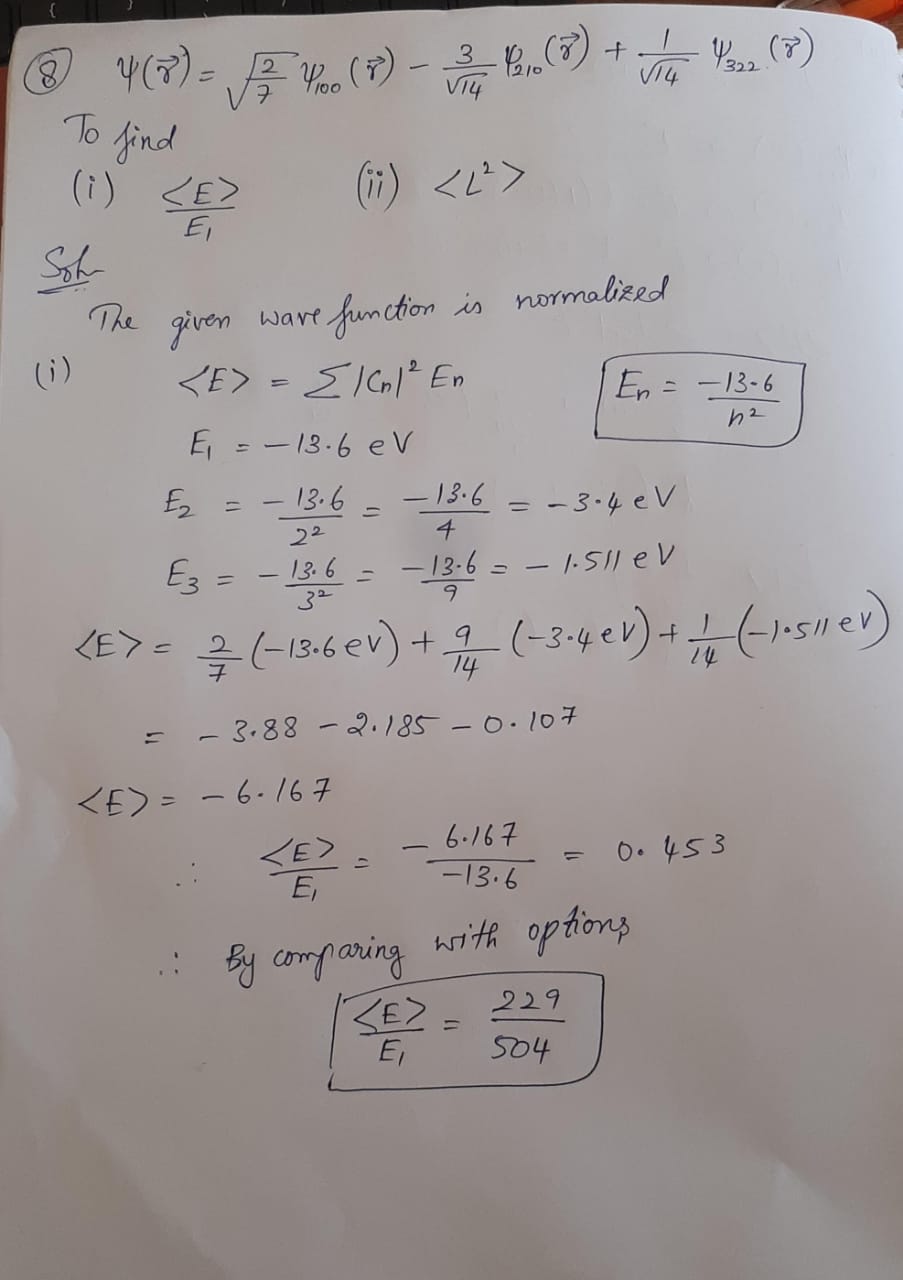 ⑧ ψ(r⃗) = √(2/7) ψ₁₀₀(r⃗) − 3/√14 ψ₂₁₀(r⃗) + 1/√14 ψ₃₂₂(r⃗)
To find
(i) <E>/E₁ (ii) <L²>
Soln
The given wave function is normalized
(i) <E> = Σ|Cn|² En
En = −13.6/n²
E₁ = −13.6 eV
E₂ = −13.6/2² = −13.6/4 = −3.4 eV
E₃ = −13.6/3² = −13.6/9 = −1.511 eV
<E> = 2/7 (−13.6 eV) + 9/14 (−3.4 eV) + 1/14 (−1.511 eV)
= −3.88 − 2.185 − 0.107
<E> = −6.167
∴ <E>/E₁ = −6.167/−13.6 = 0.453
∴ By comparing with options
<E>/E₁ = 229/504